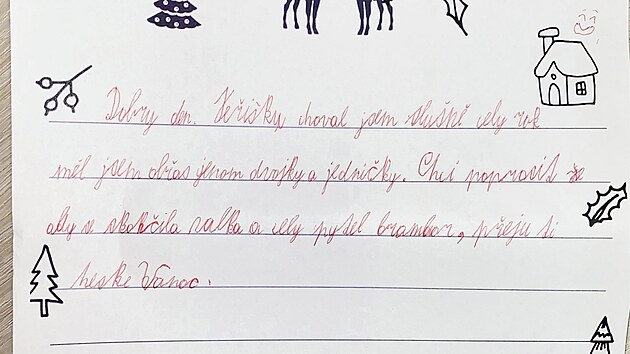 Dobry den. Ježíšku choval jsem slušně cely rok
měl jsem občas jenom dvojky a jedničky. Chci poprosit
aby se skončila valka a cely pytel brambor, přeju si
heske Vanoc.